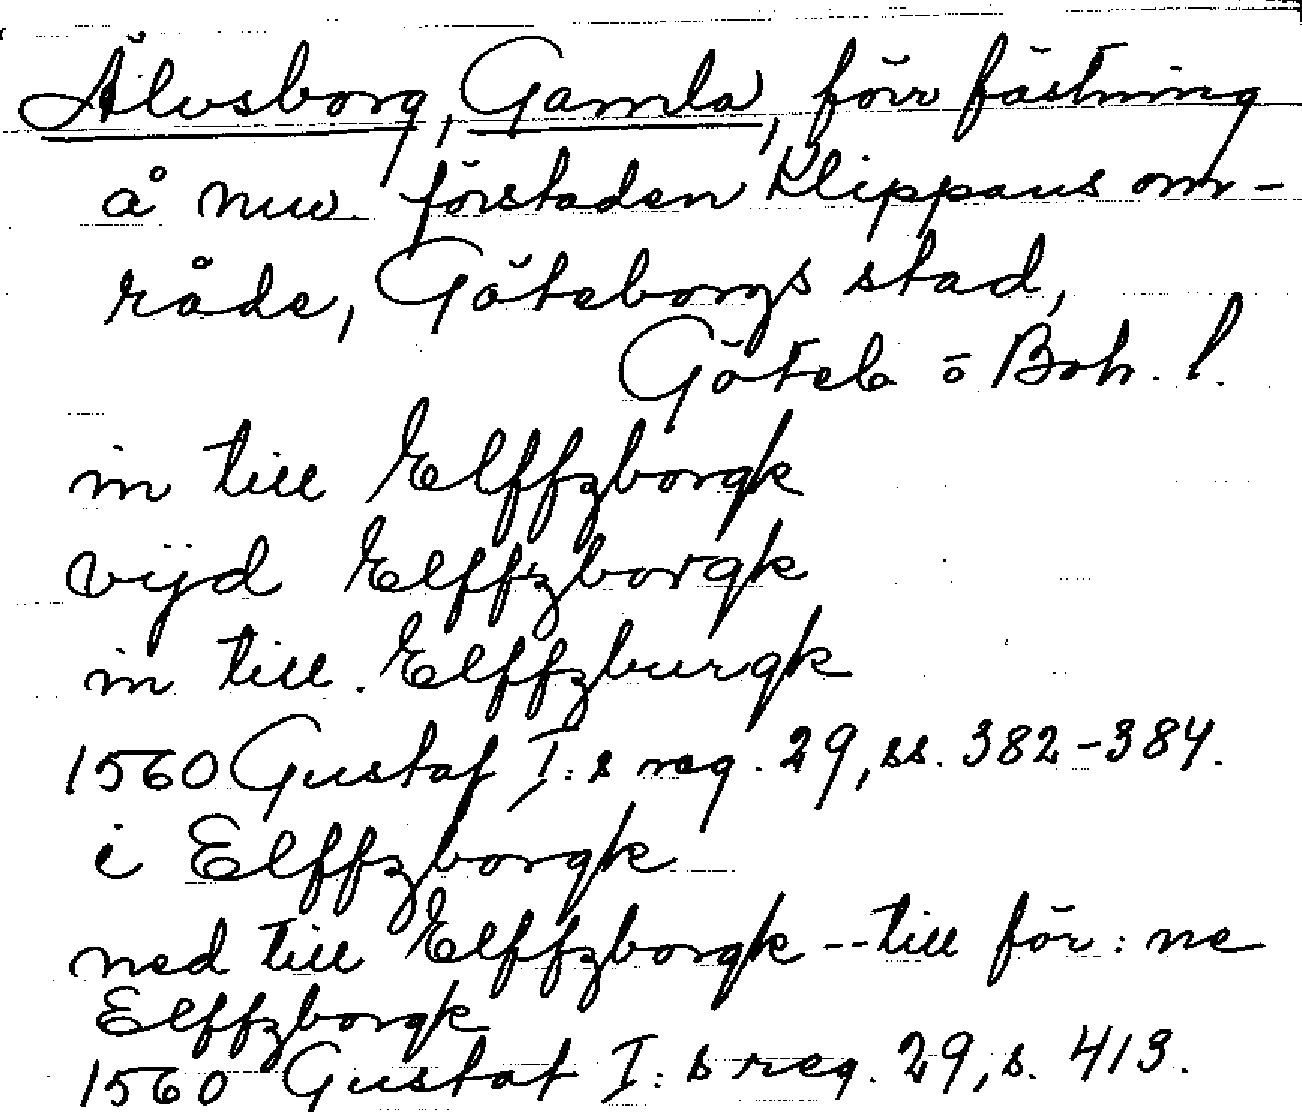 Älvsborg, Gamla, förr fästning
å nuv. förstaden Klippans om-
råde, Göteborgs stad,
Göteb o Boh. l.
in till Elffzborgk
vijd Elffzborgk
in till Elffzburgk
1560 Gustaf I:s reg. 29, ss. 382-384.
i Elffzborgk
ned till Elffzborgk -- till för: ne
Elffzborgk
1560 Gustaf I:s reg. 29, s. 413.